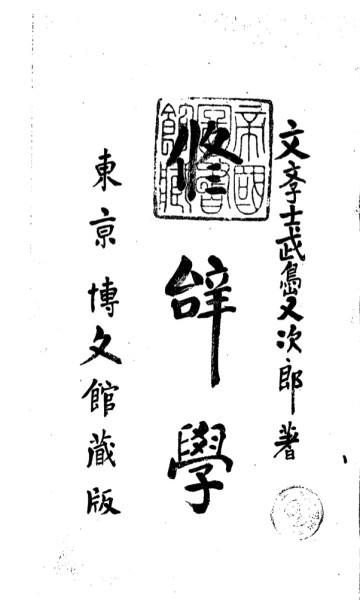 文斈士武島又次郎著
修辝學
東亰 博文館藏版
帝國圖書館藏